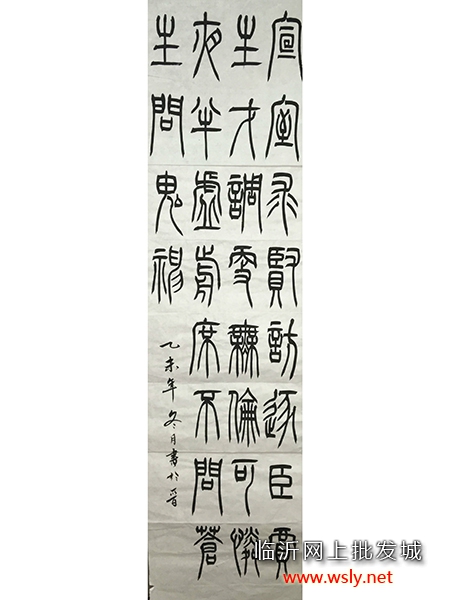 宣室求賢訪逐臣賈
生才調更無倫可憐
夜半虛前席不問蒼
生問鬼神
乙未年冬月書於
临沂网上批发城
www.wsly.net